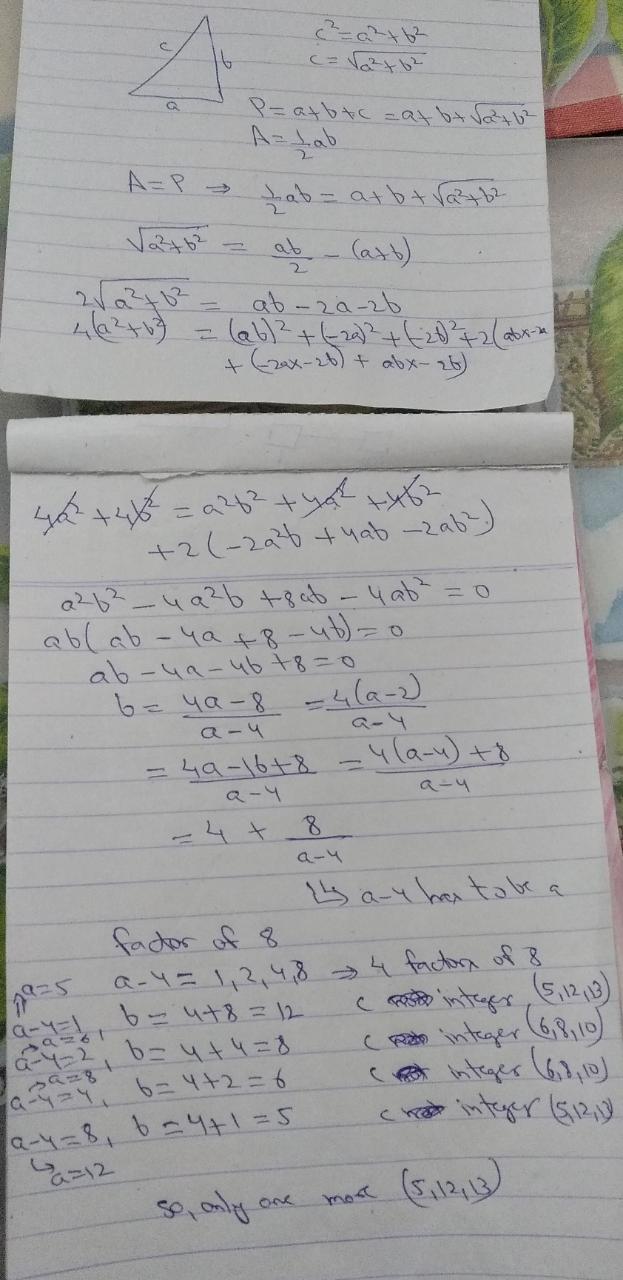 c
b
a
c² = a² + b²
c = √a² + b²
P = a + b + c = a + b + √a² + b²
A = 1/2 ab
A = P ⇒ 1/2 ab = a + b + √a² + b²
√a² + b² = ab/2 - (a + b)
2√a² + b² = ab - 2a - 2b
4(a² + b²) = (ab)² + (-2a)² + (-2b)² + 2(abx-2a
+ (-2ax-2b) + abx-2b)
4a² + 4b² = a²b² + 4a² + 4b²
+ 2(-2a²b + 4ab - 2ab²)
a²b² - 4a²b + 8ab - 4ab² = 0
ab(ab - 4a + 8 - 4b) = 0
ab - 4a - 4b + 8 = 0
b = 4a-8/a-4 = 4(a-2)/a-4
= 4a-16+8/a-4 = 4(a-4)+8/a-4
= 4 + 8/a-4
↳ a-4 has to be a
factor of 8
a-4 = 1, 2, 4, 8 → 4 factors of 8
a=5
a-4=1, b = 4+8 = 12 c integer (5,12,13)
→a=6
a-4=2, b = 4+4 = 8 c integer (6,8,10)
→a=8
a-4=4, b = 4+2 = 6 c integer (6,8,10)
a-4=8, b = 4+1 = 5 c integer (5,12,13)
↳ a=12
so, only one more (5,12,13)